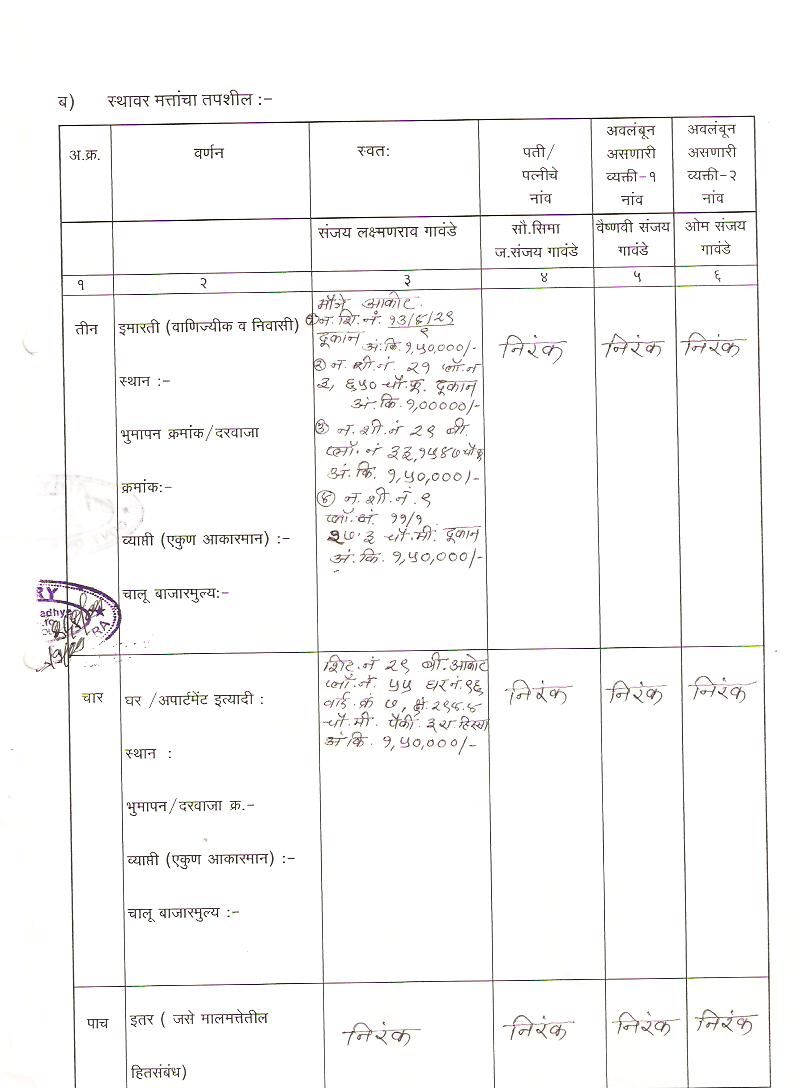 ब) स्थावर मत्तांचा तपशील :-
अ.क्र. वर्णन स्वत: पती/ पत्नीचे नांव अवलंबून असणारी व्यक्ती-१ नांव अवलंबून असणारी व्यक्ती-२ नांव
संजय लक्ष्मणराव गावंडे सौ.सिमा ज.संजय गावंडे वैष्णवी संजय गावंडे ओम संजय गावंडे
१ २ ३ ४ ५ ६
तीन इमारती (वाणिज्यीक व निवासी)
स्थान :-
भुमापन क्रमांक/दरवाजा
क्रमांक:-
व्याप्ती (एकुण आकारमान) :-
चालू बाजारमुल्य:-
मौजे आकोट.
① न.शि.नं. १३/४/२९
९
दूकान अं.कि. १,५०,०००/-
② न.शी.नं. २१ प्लॉ.नं
३, ६५० चौ.फू. दूकान
अं.कि. १,०००००/-
③ न.शी.नं २९ बी.
प्लॉ.नं ३३,१५४७ चौ फू
अं.कि. १,५०,०००/-
④ न.शी.नं.९
प्लॉ.नं. ११/१
२७.३ चौ.मी. दूकान
अं.कि. १,५०,०००/-
निरंक निरंक निरंक
RY
adhye
RA
चार घर /अपार्टमेंट इत्यादी :
स्थान :
भुमापन/दरवाजा क्र.-
व्याप्ती (एकुण आकारमान) :-
चालू बाजारमुल्य :-
शिट.नं २९ बी.आकोट
प्लॉ.नं ५५ घर नं.९६
वार्ड क्रं ७, क्षे २९८.४
चौ.मी. पैकी हिस्सा
अं कि. १,५०,०००/-
निरंक निरंक निरंक
पाच इतर ( जसे मालमत्तेतील
हितसंबंध)
निरंक निरंक निरंक निरंक